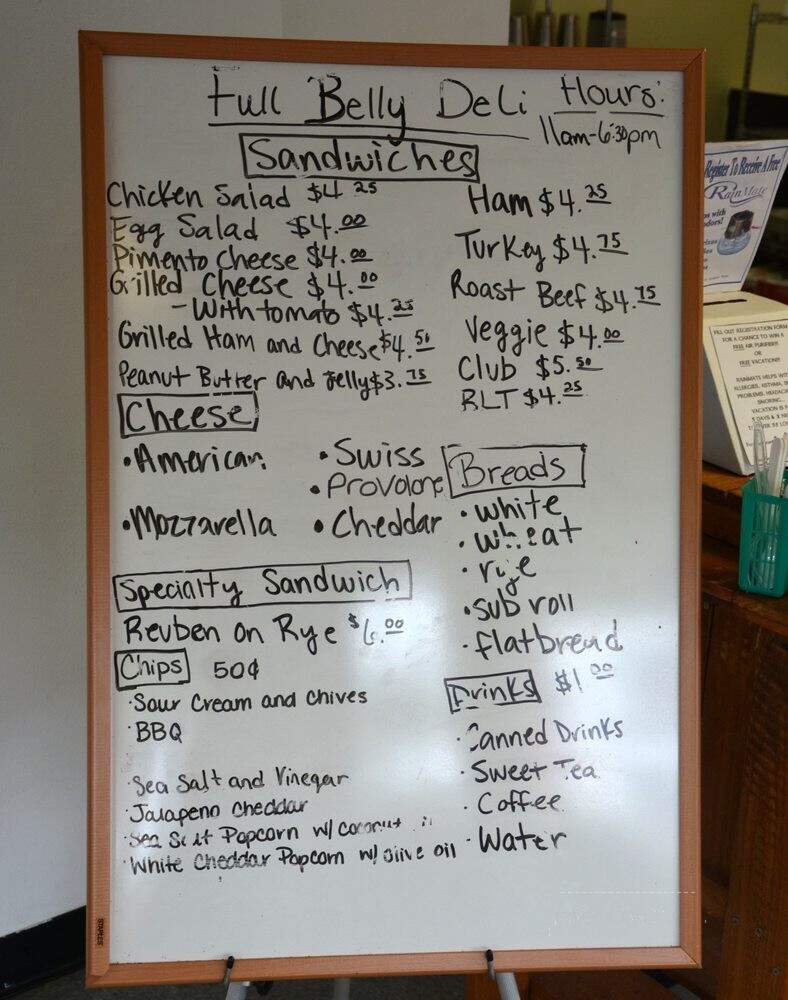 Full Belly Deli
Hours:
11am-6:30pm
Sandwiches
Chicken Salad $4.25
Egg Salad $4.00
Pimento Cheese $4.00
Grilled Cheese $4.00
- With tomato $4.25
Grilled Ham and Cheese $4.50
Peanut Butter and Jelly $3.75
Ham $4.25
Turkey $4.75
Roast Beef $4.75
Veggie $4.00
Club $5.50
BLT $4.25
Cheese
• American
• Mozzarella
• Swiss
• Provolone
• Cheddar
Breads
• White
• wheat
• rye
• sub roll
• flatbread
Specialty Sandwich
Reuben on Rye $6.00
Chips 50¢
· Sour Cream and Chives
· BBQ
· Sea Salt and Vinegar
· Jalapeno Cheddar
· Sea Salt Popcorn w/ coconut
· White Cheddar Popcorn w/ olive oil
Drinks $1.00
· Canned Drinks
· Sweet Tea
· Coffee
· Water
STAPLES
Register To Receive A Free
RainMate
FILL OUT REGISTRATION FORM
FOR A CHANCE TO WIN A
FREE AIR PURIFIER!!
OR
FREE VACATION!!
RAINMATE HELPS WITH
ALLERGIES, ASTHMA,
PROBLEMS,
SMOKING...
VACATION IS